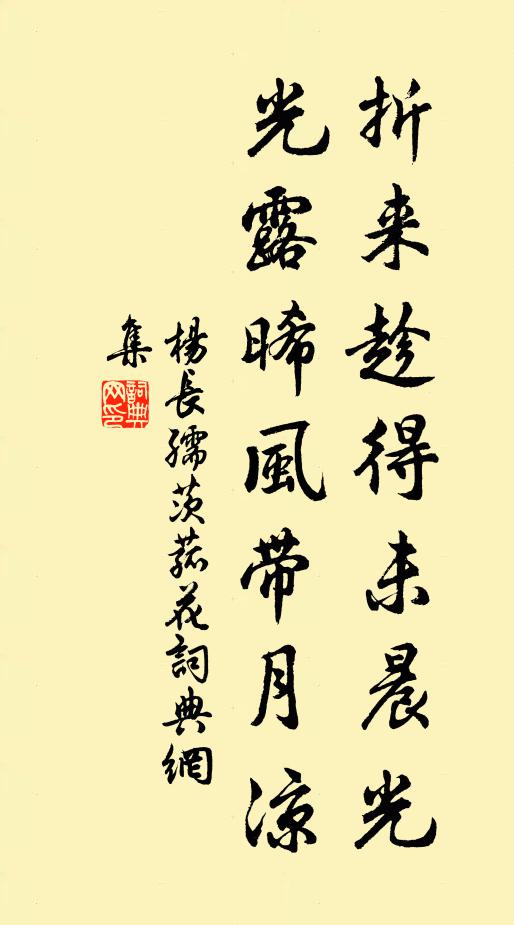 折来趁得未晨光
光露晞風带月涼
楊長孺茨菰花詞典網
集
詞典网印